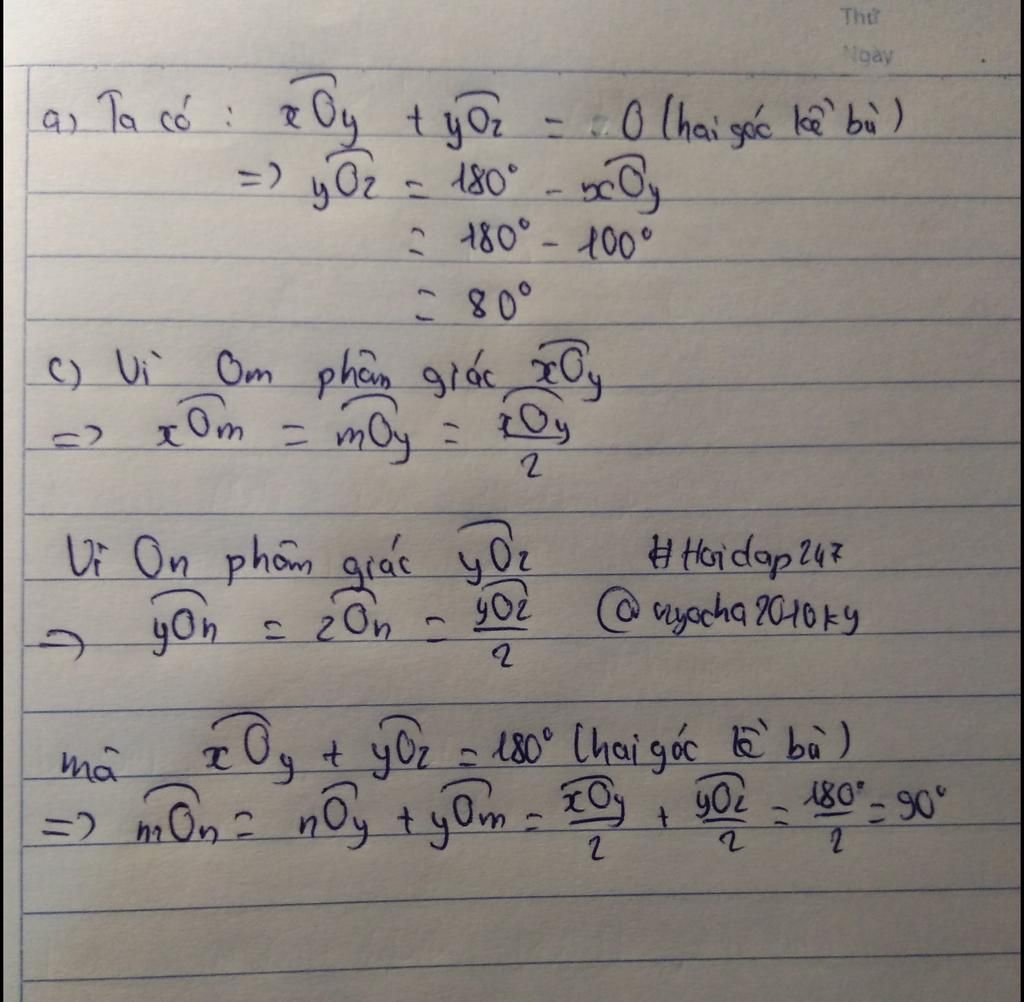 Thứ
Ngày
a) Ta có : \widehat{xOy} + \widehat{yOz} = 0 (hai góc kề bù)
=> \widehat{yOz} = 180° - \widehat{xOy}
= 180° - 100°
= 80°
c) Vì Om phân giác \widehat{xOy}
=> \widehat{xOm} = \widehat{mOy} = \frac{\widehat{xOy}}{2}
Vì On phân giác \widehat{yOz} #Hoidap247
=> \widehat{yOn} = \widehat{zOn} = \frac{\widehat{yOz}}{2}
mà \widehat{xOy} + \widehat{yOz} = 180° (hai góc kề bù)
=> \widehat{mOn} = nOy + \widehat{yOm} = \frac{\widehat{xOy}}{2} + \frac{\widehat{yOz}}{2} = \frac{180°}{2} = 90°